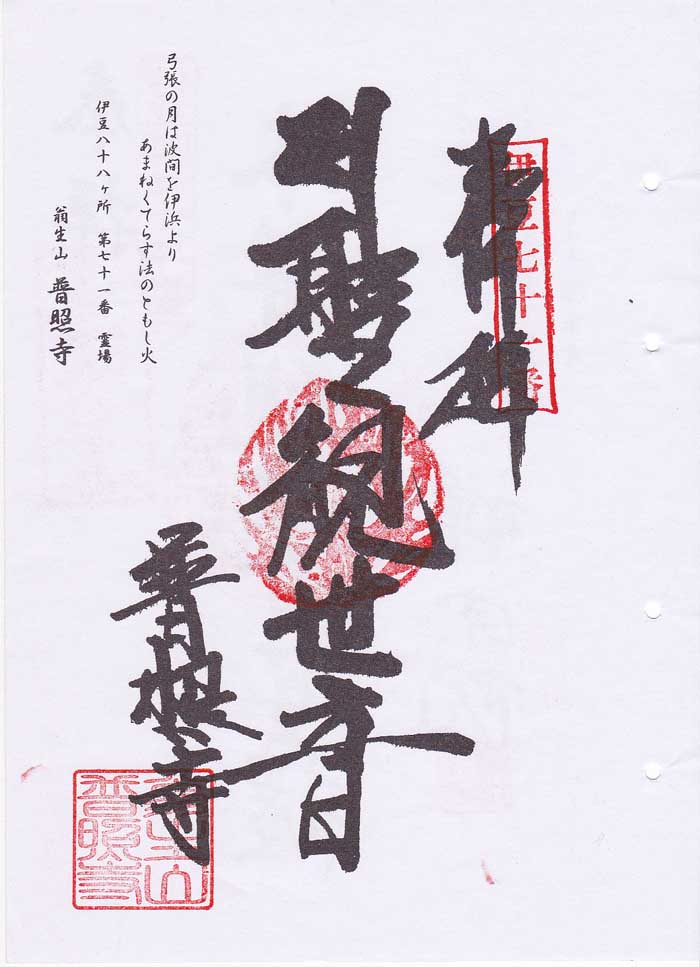 奉拝
伊豆七十一番
聖観世音
普照寺
弓張の月は波間を伊浜より
あまねくてらす法のともし火
伊豆八十八ヶ所 第七十一番 霊場
翁生山 普照寺
翁生山
普照寺